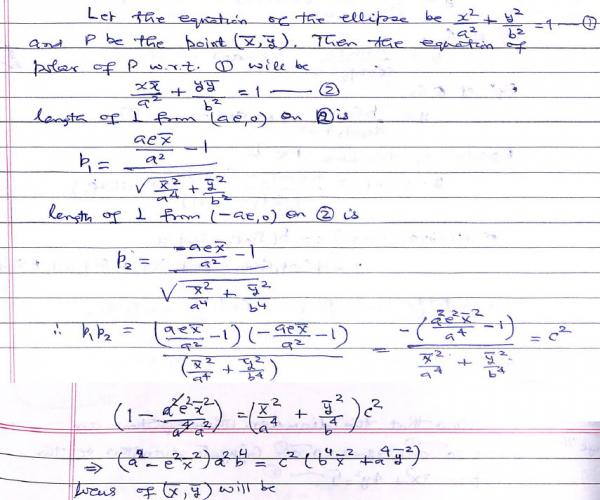 Let the equation of the ellipse be x²/a² + y²/b² = 1 — ①
and P be the point (x̄, ȳ). Then the equation of
polar of P w.r.t. ① will be
xx̄/a² + yȳ/b² = 1 — ②
length of ⊥ from (ae, 0) on ② is
p₁ = (aex̄/a² - 1) / √(x̄²/a⁴ + ȳ²/b²)
length of ⊥ from (-ae, 0) on ② is
p₂ = (-aex̄/a² - 1) / √(x̄²/a⁴ + ȳ²/b⁴)
∴ p₁p₂ = (aex̄/a² - 1)(-aex̄/a² - 1) / (x̄²/a⁴ + ȳ²/b⁴) = -(a²e²x̄²/a⁴ - 1) / (x̄²/a⁴ + ȳ²/b²) = c²
(1 - a²e²x̄²/a⁴a²) = (x̄²/a⁴ + ȳ²/b⁴) c²
⇒ (a² - e²x̄²) a²b⁴ = c² (b⁴x̄² + a⁴ȳ²)
locus of (x̄, ȳ) will be